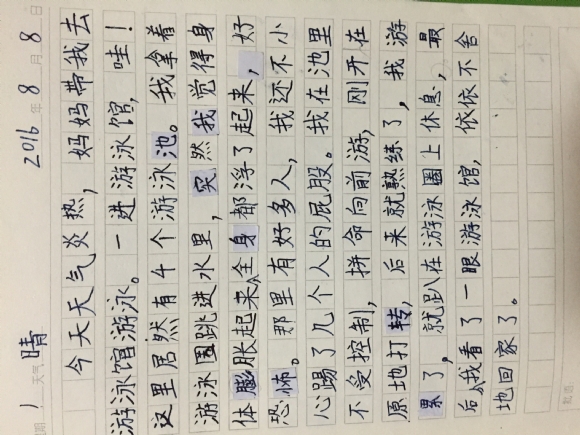 天气 晴 2016年8月8日
今天天气炎热，妈妈带我去
游泳馆游泳。一进游泳馆，哇！
这里居然有4个游泳池。我拿着
游泳圈跳进水里，突然我觉得身
体膨胀起来，全身都浮了起来，好
恐怖。那里有好多人，我还不小
心踢了几个人的屁股。我在池里
不受控制，拼命向前游，刚开在
原地打转，后来就熟练了，我游
累了，就趴在游泳圈上休息，最
后，我看了一眼游泳馆，依依不舍
地回家了。